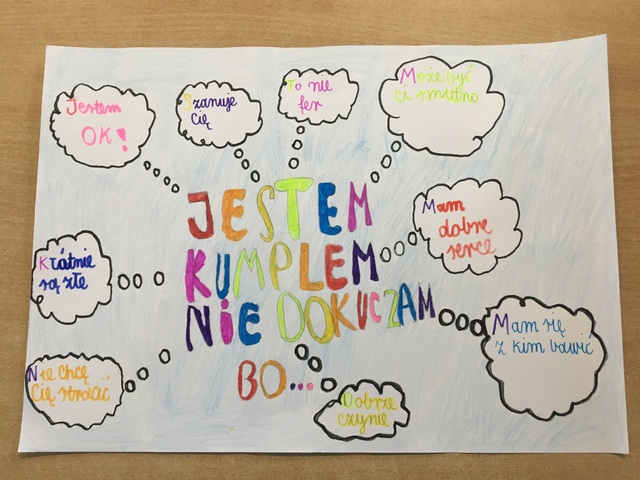 Jestem
OK!
Szanuje
Cię
To nie
fer
Może być
ci smutno
JESTEM
KUMPLEM
NIE DOKUCZAM
BO...
Mam
dobre
serce
Kłótnie
są złe
Mam się
z kim bawić
Nie chcę
Cię stracić
Dobrze
czynie